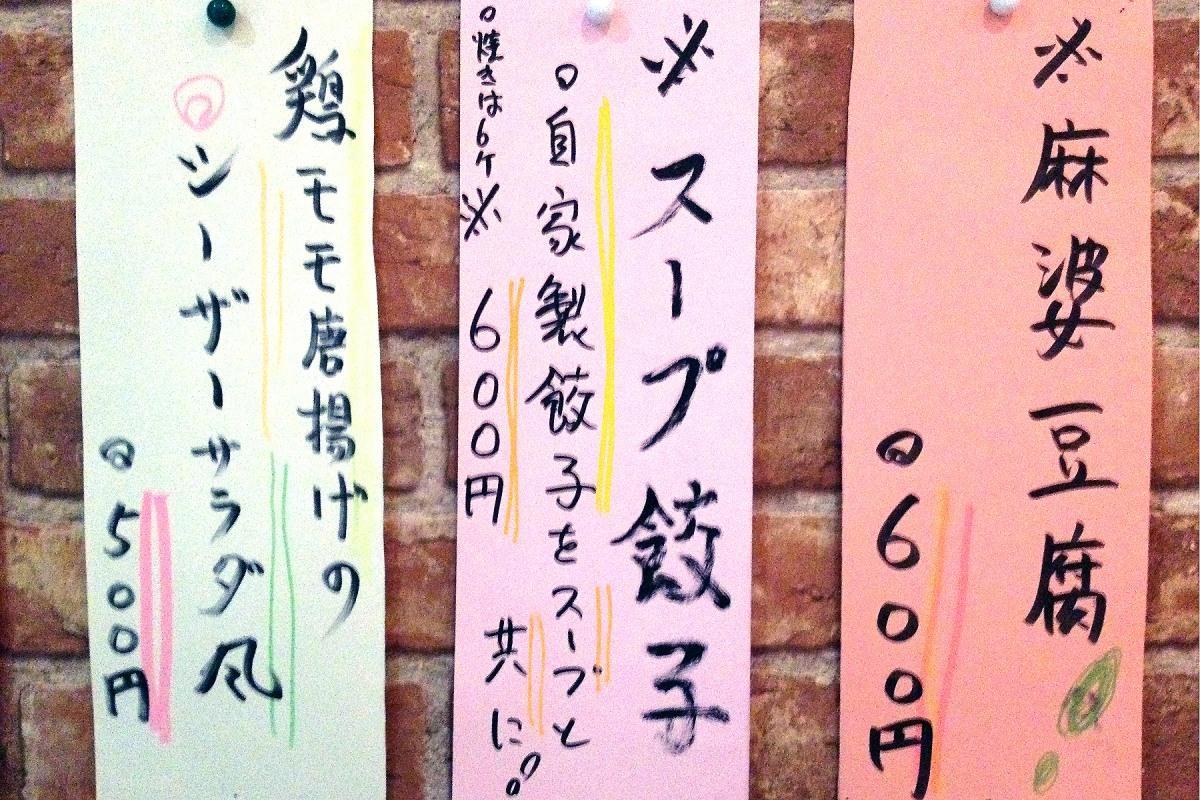 ※麻婆豆腐
◎600円
※スープ餃子
○自家製餃子をスープと
共に!!
○焼きは6ケ※
600円
鶏モモ唐揚げの
◎シーザーサラダ風
◎500円